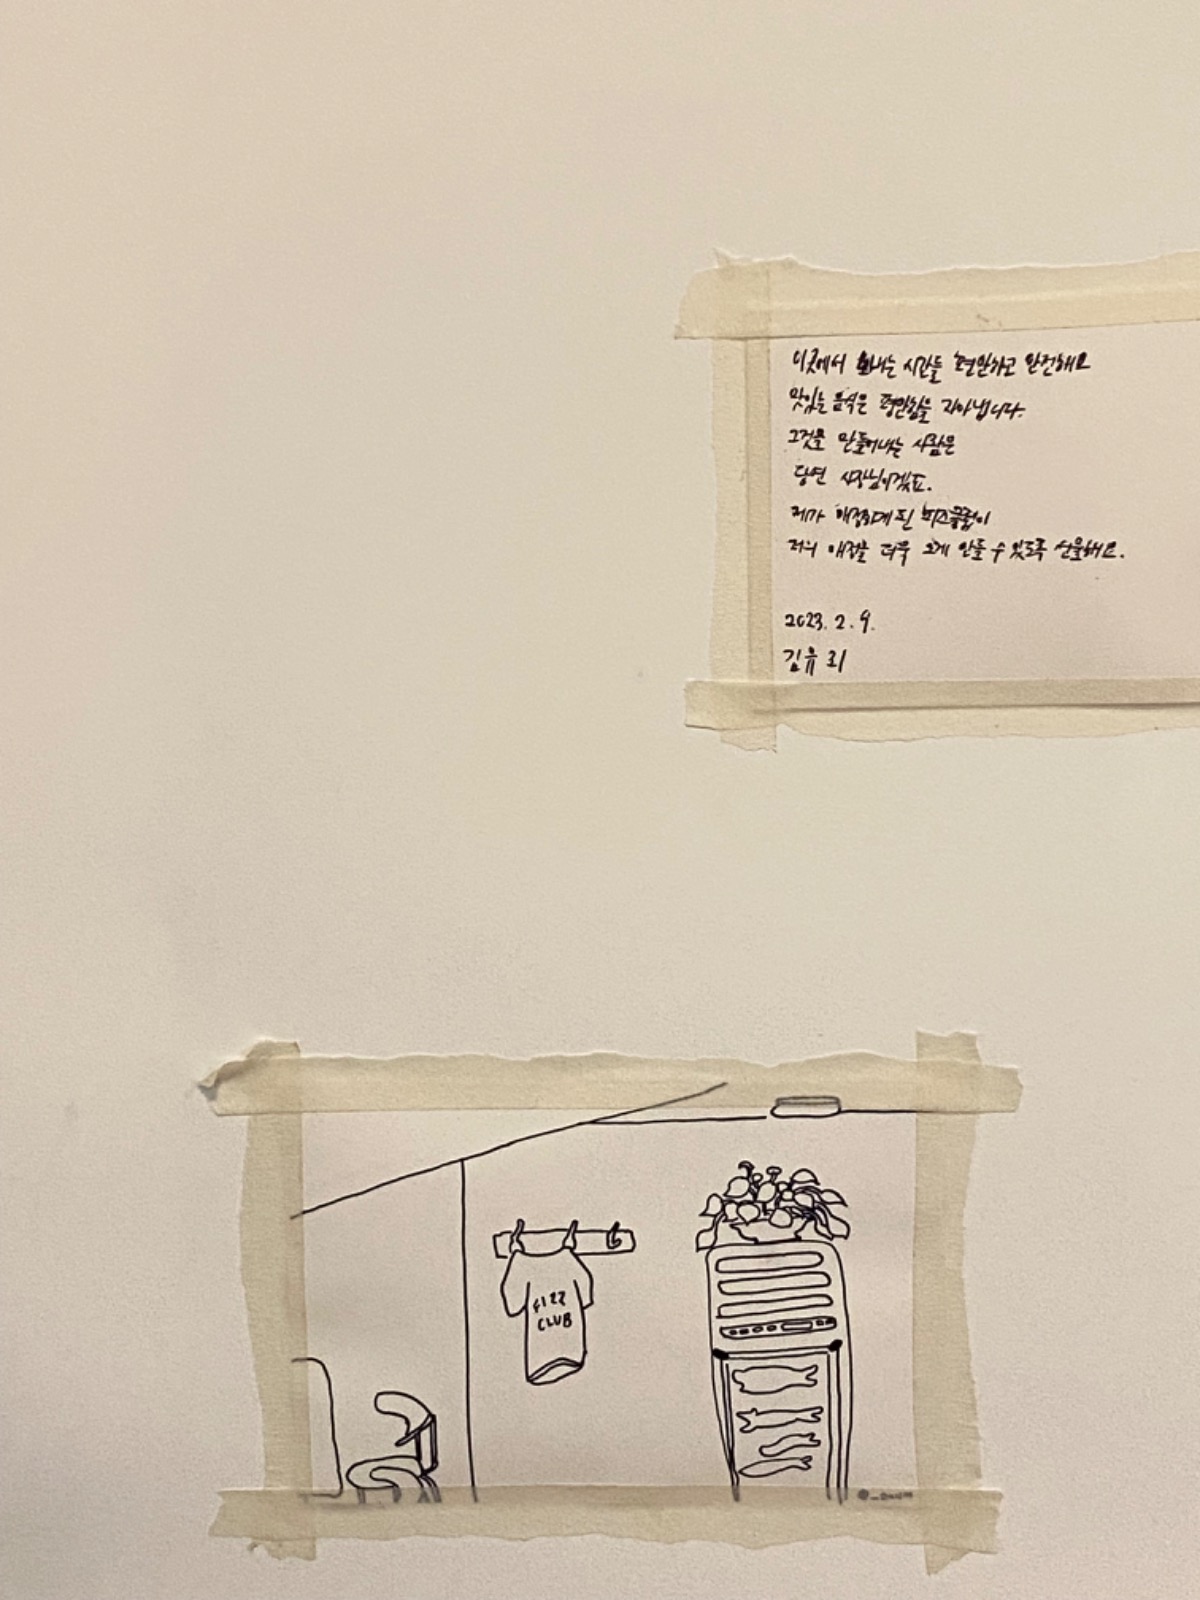 이곳에서 보내는 시간들 편안하고 안전해요
맛있는 음식은 평안함을 자아냅니다.
그것을 만들어내는 사람은
당연 사장님이겠죠.
제가 애정하게 된 피즈클럽이
저의 애정을 더욱 크게 만들 수 있도록 선물해요.
2023. 2. 9.
김유리
FIZZ
CLUB